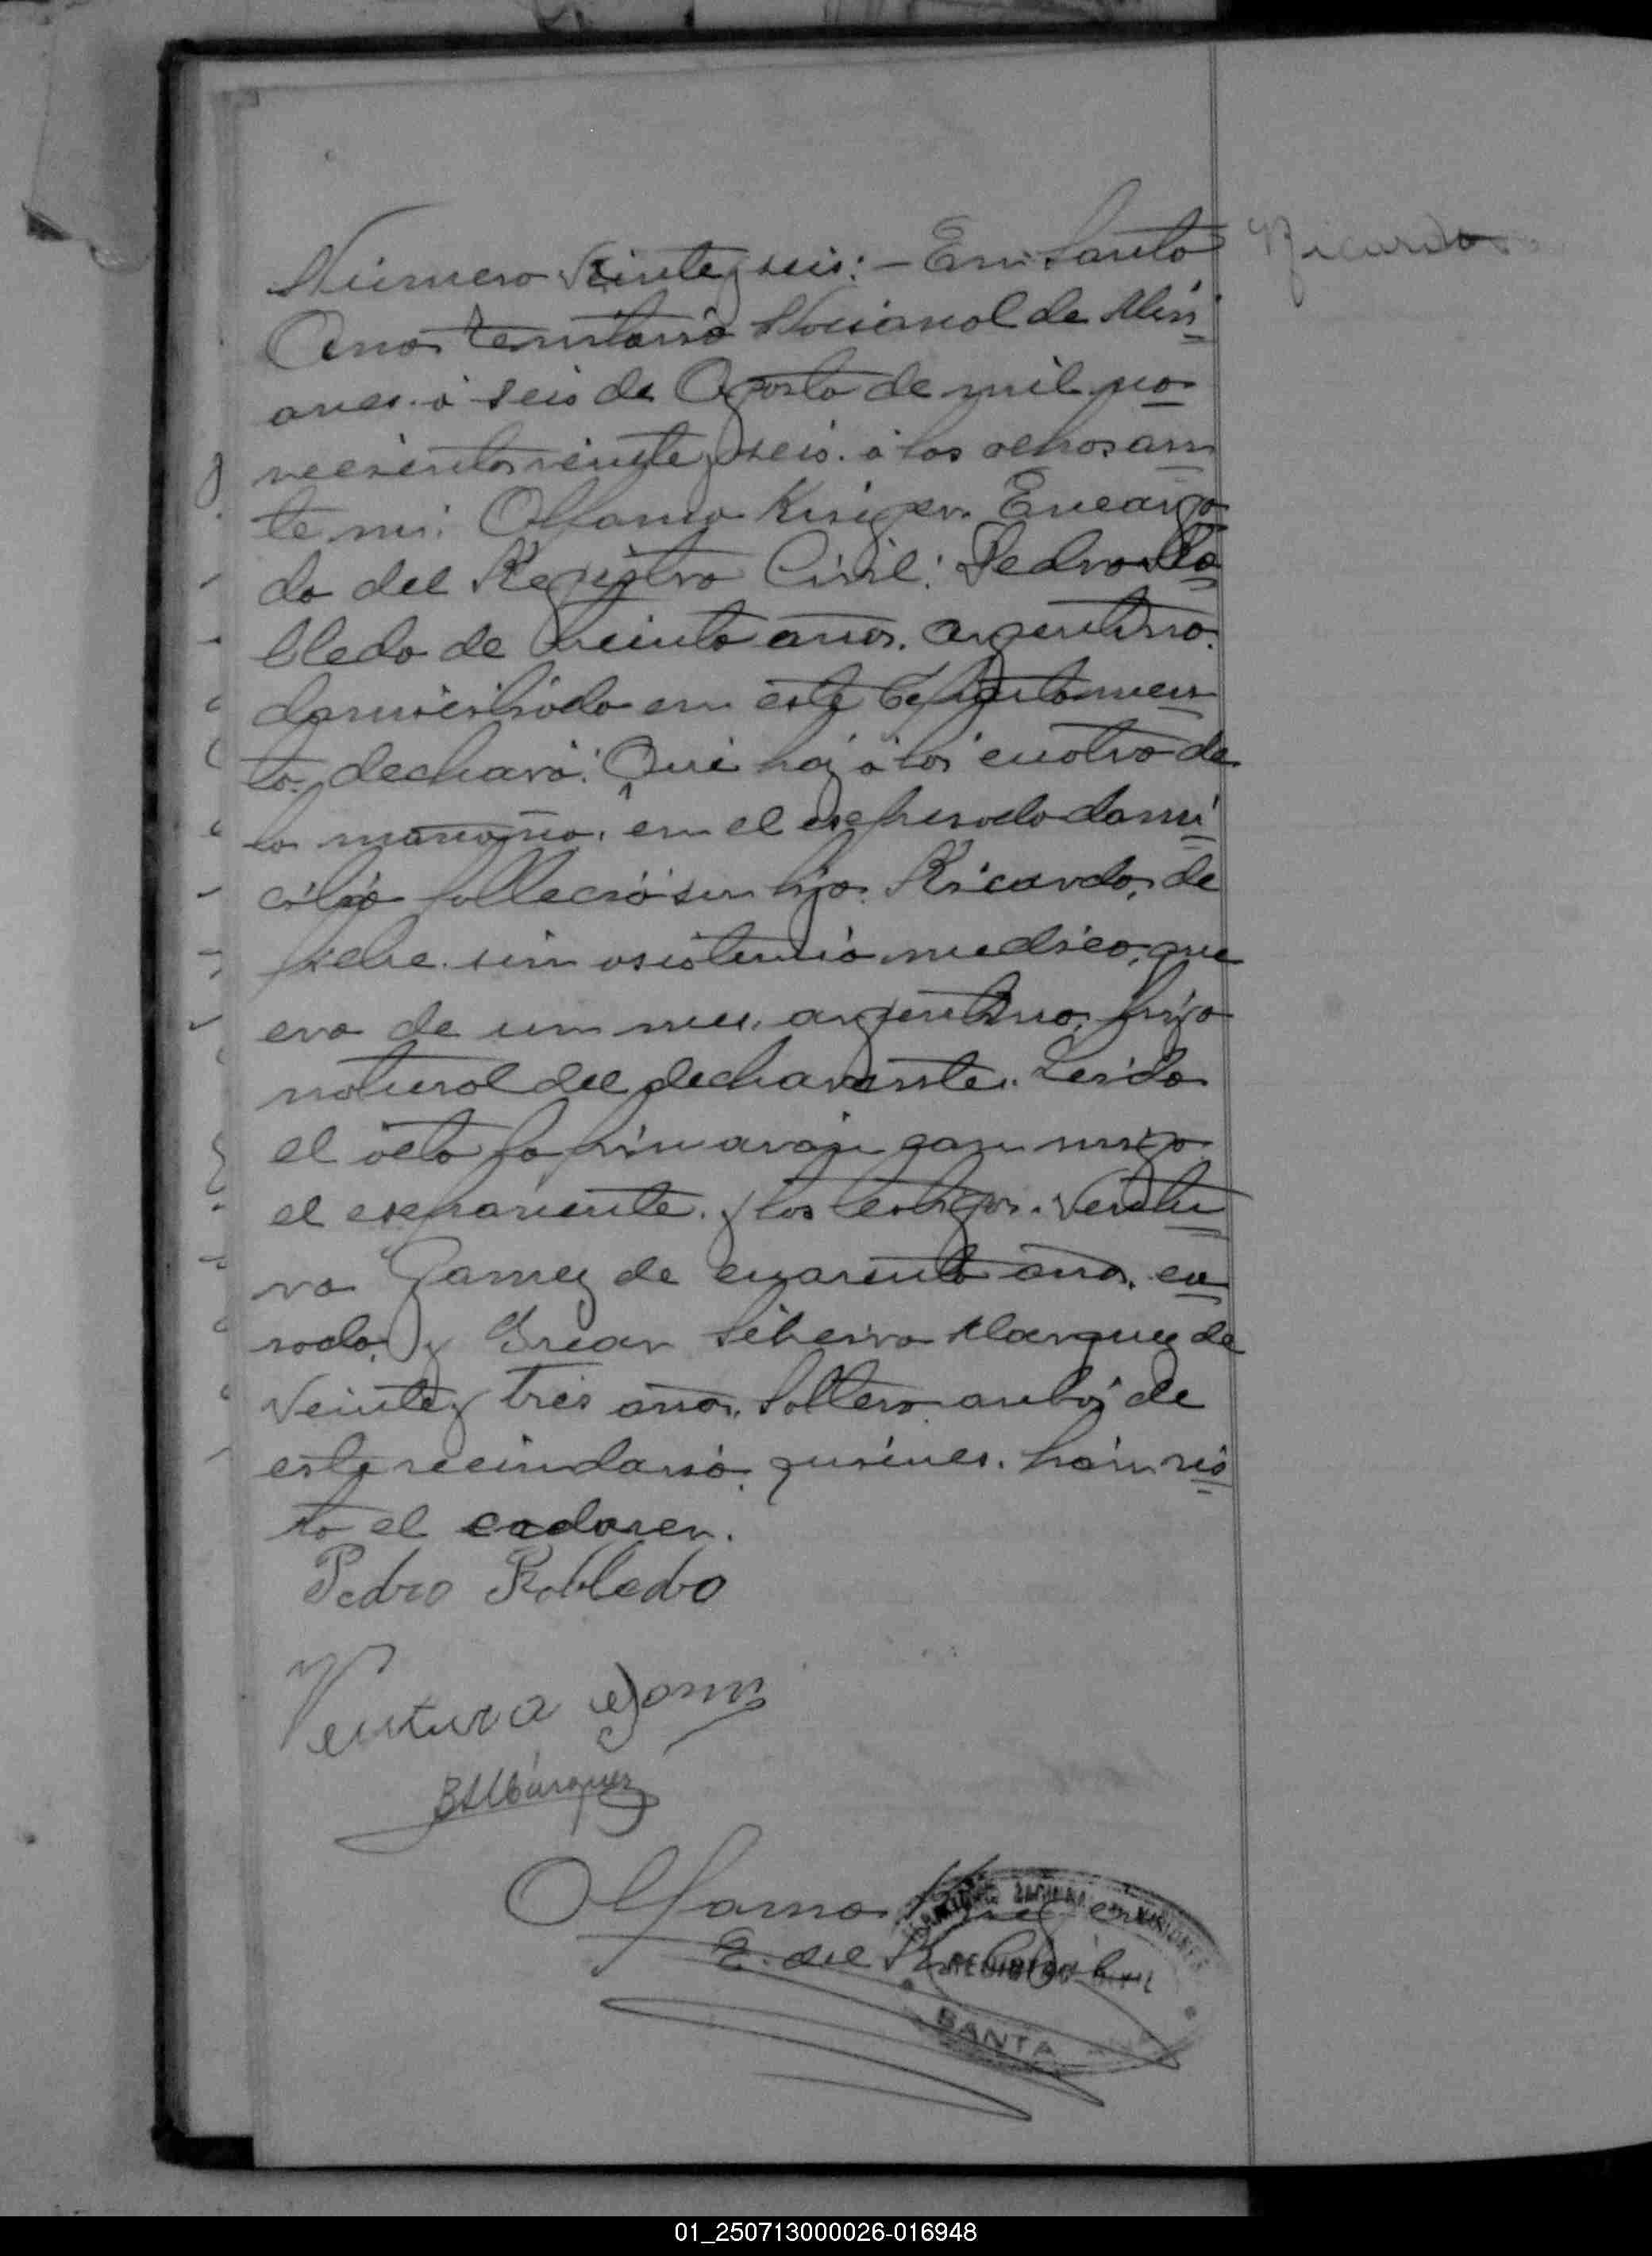 Número Veinte y seis: - En Santa
Ricardo
Ana territorio Nacional de Misi
ones. á seis de Agosto de mil no
vecientos veinte y seis. á las ocho. an
te mi: Encarga
do del Registro Civil: Pedro Ro
bledo de treinta años. argentino.
domiciliado en este Departamen
to. declaró: Que hoy á las cuatro de
la mañana. en el expresado domi
cilio falleció su hijo. Ricardo. de
fiebre. sin asistencia medica, que
era de un mes. argentino, hijo
natural del declarante. Leida
el acta la firmaron con migo
el exponente. y los testigos. Ventu
ra Gamez de cuarenta años. ca
sado. y Silveira Marquez de
Veinte y tres años. Soltero. ambos de
este vecindario. quienes. han vis
to el cadaver.
Pedro Robledo
Ventura Gomez
B S Márquez
E. del R. Civil
REGISTRO CIVIL
SANTA ANA
01_250713000026-016948